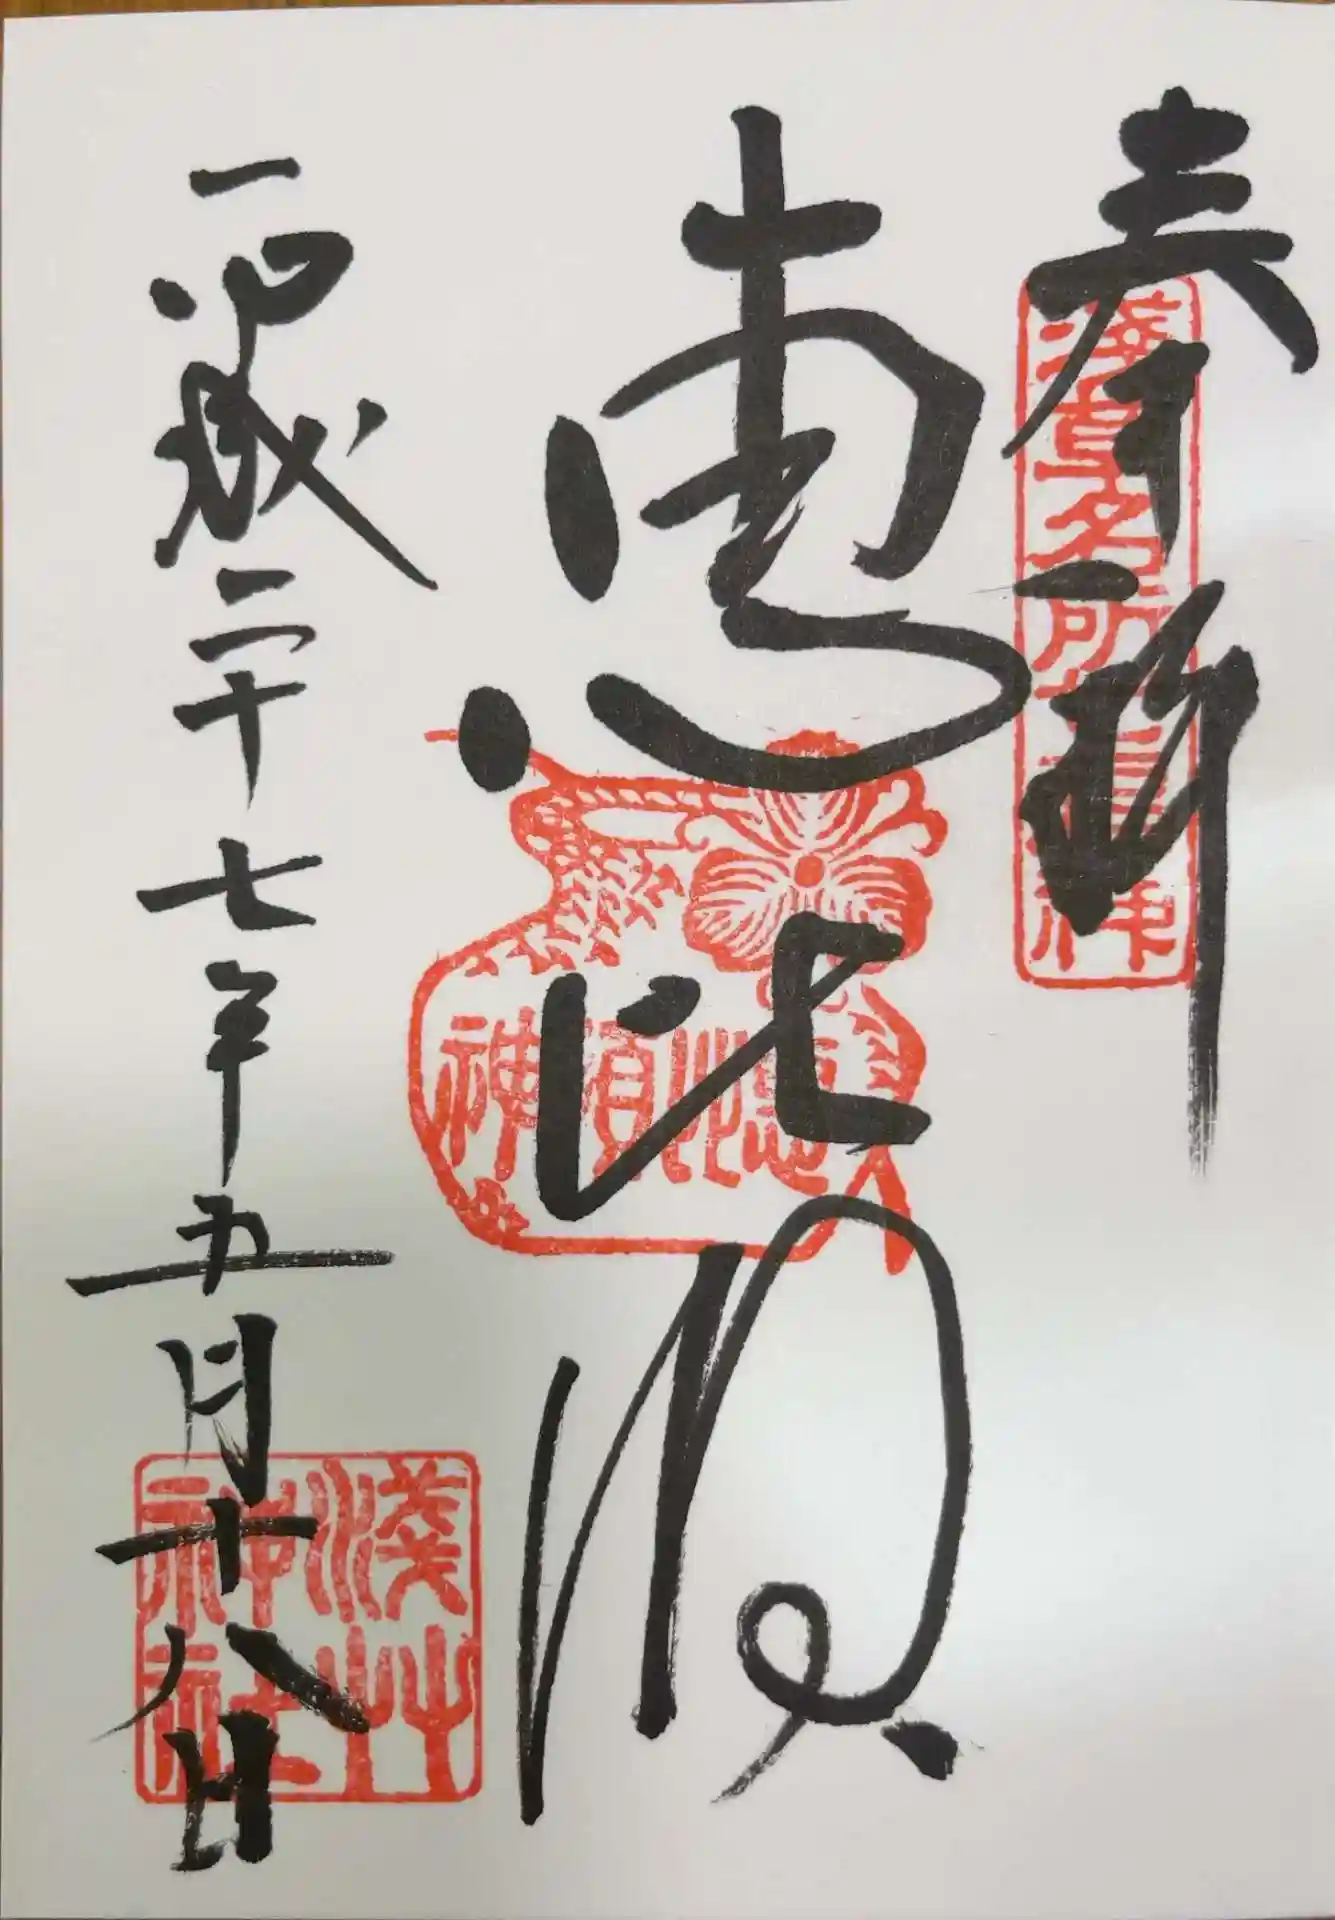 奉拝
浅草名所七福神
恵比須
恵比須神
平成二十七年五月十八日
浅草神社